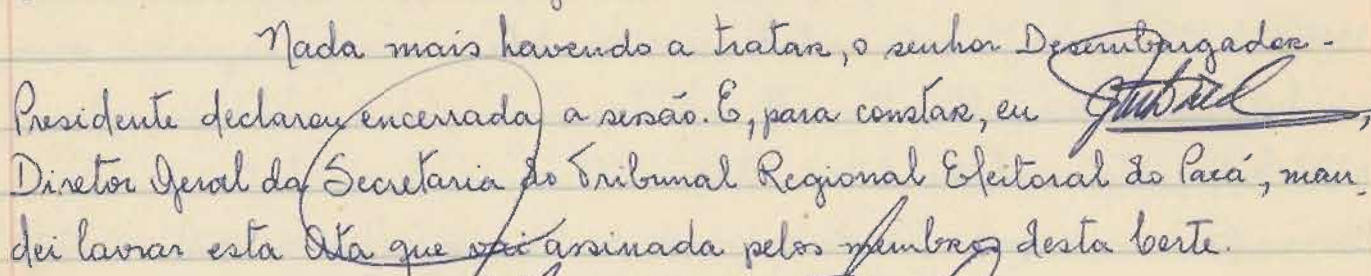 Nada mais havendo a tratar, o senhor Desembargador-
Presidente declarou encerrada a sessão. E, para constar, eu
Diretor Geral da Secretaria do Tribunal Regional Eleitoral do Pará, man-
dei lavrar esta Ata que vai assinada pelos membros desta Corte.